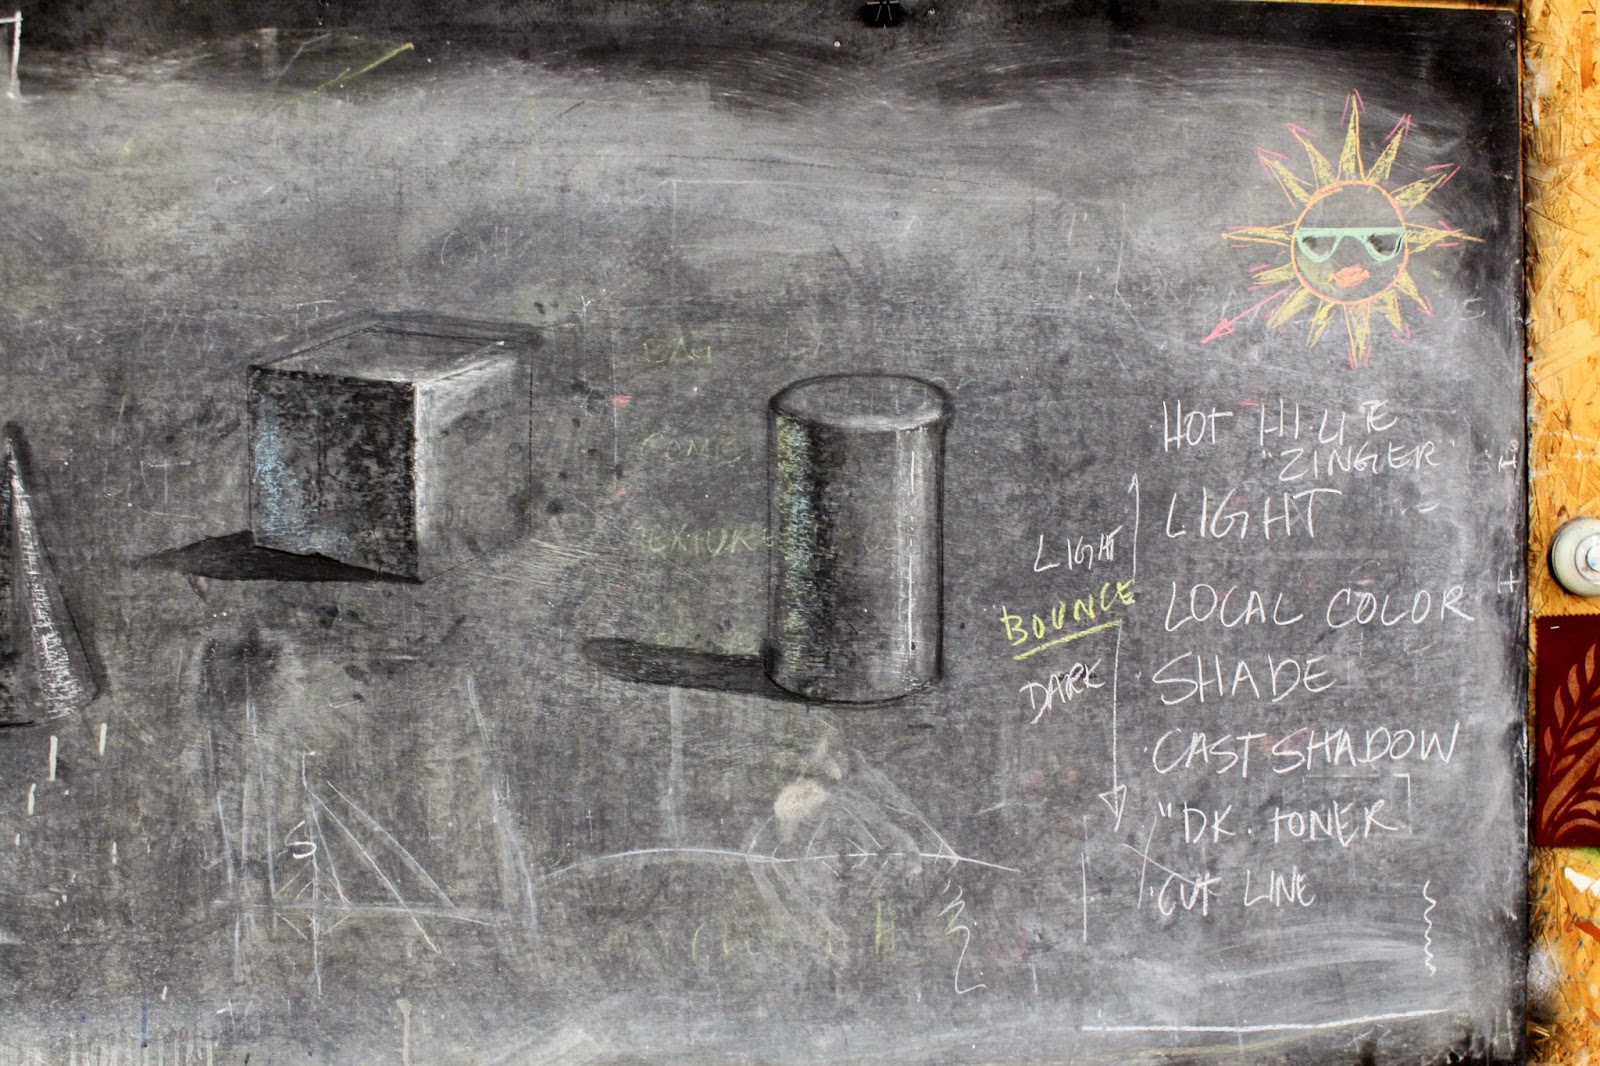 HOT HI·LITE
"ZINGER"
LIGHT
LIGHT
BOUNCE
DARK
LOCAL COLOR
SHADE
CAST SHADOW
"DK. TONER
CUT LINE
TEXTURE
CONE